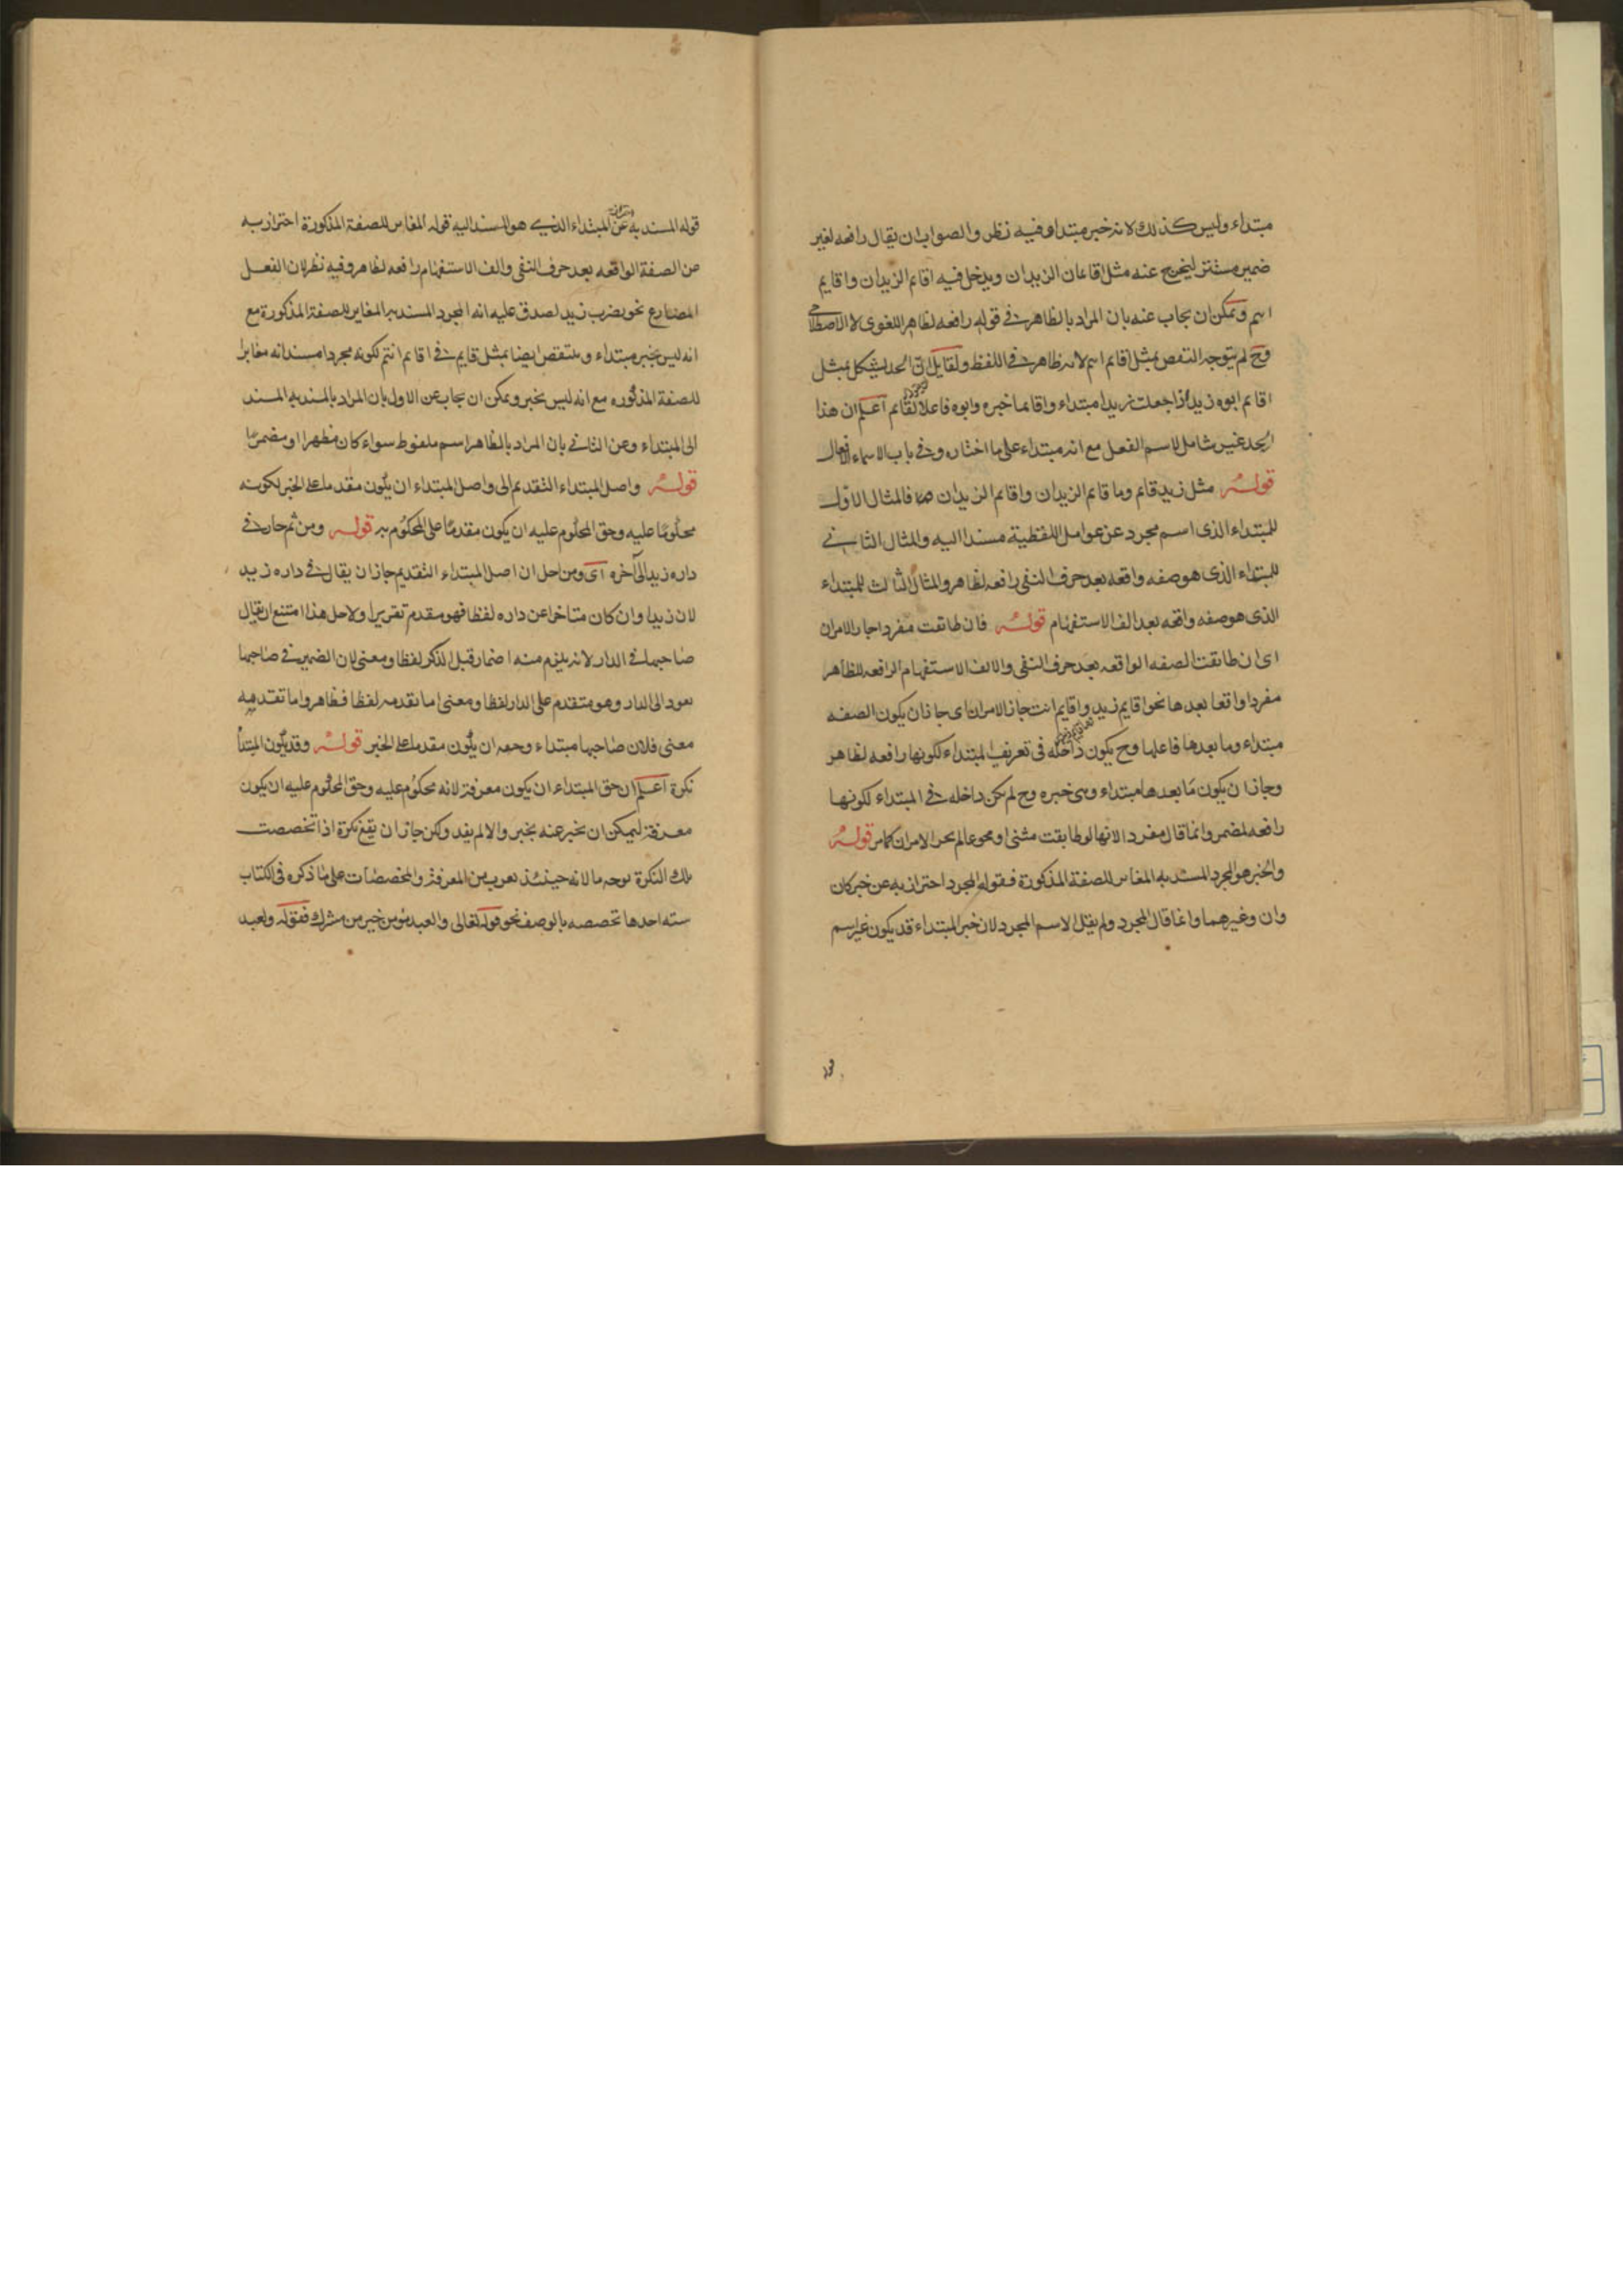 مبتداء وليس كذلك لانه خبر مبتداء وفيه نظر والصواب ان يقال رافعه لغير
ضمير مستتر ليخرج عنه مثل اقاعان الزيدان ويدخل فيه اقائم الزيدان واقايم
ويمكن ان يجاب عنه بان المراد بالظاهر في قوله رافعه لظاهر اللغوى لا الاصطلاحى
وح لم يتوجه النقض بمثل اقائم لانه ظاهر في اللفظ ولقايل ان الحد يشكل بمثل
اقائم ابوه زيد اذا جعلت زيدا مبتداء واقائما خبره وابوه فاعلا لقائم اعلم ان هذا
الحد غير شامل لاسم الفعل مع انه مبتداء على ما اختاره في باب الاسماء الافعال
قوله مثل زيد قائم وما قائم الزيدان واقائم الزيدان فالمثال الاول
للمبتداء الذى اسم مجرد عن عوامل اللفظية مسندا اليه والمثال الثانى
للمبتداء الذى هو صفه واقعه بعد حرف النفى رافعه لظاهر والمثال الثالث للمبتداء
الذى هو صفه واقعه بعد الف الاستفهام قوله فان طابقت مفردا جاز الامران
اى ان طابقت الصفه الواقعه بعد حرف النفى والالف الاستفهام الرافعه للظاهر
مفردا واقعا بعدها نحو اقايم زيد واقايم انت جاز الامران اى جاز ان يكون الصفه
مبتداء وما بعدها فاعلها وح يكون داخله فى تعريف المبتداء لكونها رافعه لظاهر
وجاز ان يكون ما بعدها مبتداء وهى خبره وح لم يكن داخله في المبتداء لكونها
رافعه لمضمر وانما قال مفردا لانها لو طابقت مثنى او مجموعا لم يجز الامران كما مر قوله
والخبر هو المجرد المسند به المغاير للصفة المذكورة فقوله المجرد احتراز به عن خبر كان
وان وغيرهما وانما قال المجرد ولم يقل الاسم المجرد لان خبر المبتداء قد يكون غير اسم
قوله المسند به عن المبتداء الذي هو المسند اليه قوله المغاير للصفة المذكورة احتراز به
من الصفة الواقعه بعد حرف النفى والف الاستفهام رافعه لظاهر وفيه نظر لان الفعل
المضارع نحو يضرب زيد لصدق عليه انه المجرد المسند به المغاير للصفة المذكورة مع
انه ليس بخبر مبتداء وينتقض ايضا بمثل قايم في اقايم انتم لكونه مجردا مسندا به مغايرا
للصفة المذكوره مع انه ليس بخبر ويمكن ان يجاب عن الاول بان المراد بالمسند به المسند
الى المبتداء وعن الثانى بان المراد بالظاهر اسم ملفوظ سواء كان مظهرا او مضمرا
قوله واصل المبتداء التقديم الى واصل المبتداء ان يكون مقدما على الخبر لكونه
محكوما عليه وحق المحكوم عليه ان يكون مقدما على المحكوم به قوله ومن ثم جاز في
داره زيد الى آخره اى ومن اجل ان اصل المبتداء التقديم جاز ان يقال في داره زيد
لان زيدا وان كان متاخرا عن داره لفظا فهو مقدم تقديرا ولاجل هذا امتنع ان يقال
صاحبها في الدار لانه يلزم منه اضمار قبل الذكر لفظا ومعنى لان الضمير في صاحبها
يعود الى الدار وهو متقدم على الدار لفظا ومعنى اما تقدمه لفظا فظاهر واما تقدمه
معنى فلان صاحبها مبتداء وحقه ان يكون مقدما على الخبر قوله وقد يكون المبتدأ
نكرة اعلم ان حق المبتداء ان يكون معرفة لانه محكوم عليه وحق المحكوم عليه ان يكون
معرفة ليمكن ان يخبر عنه بخبر والا لم يفد ولكن جاز ان يقع نكرة اذا تخصصت
تلك النكرة بوجه ما لانه حينئذ يقرب من المعرفة والمخصصات على ما ذكره فى الكتاب
سته احدها تخصصه بالوصف نحو قوله تعالى والعبد مؤمن خير من مشرك فقوله ولعبد